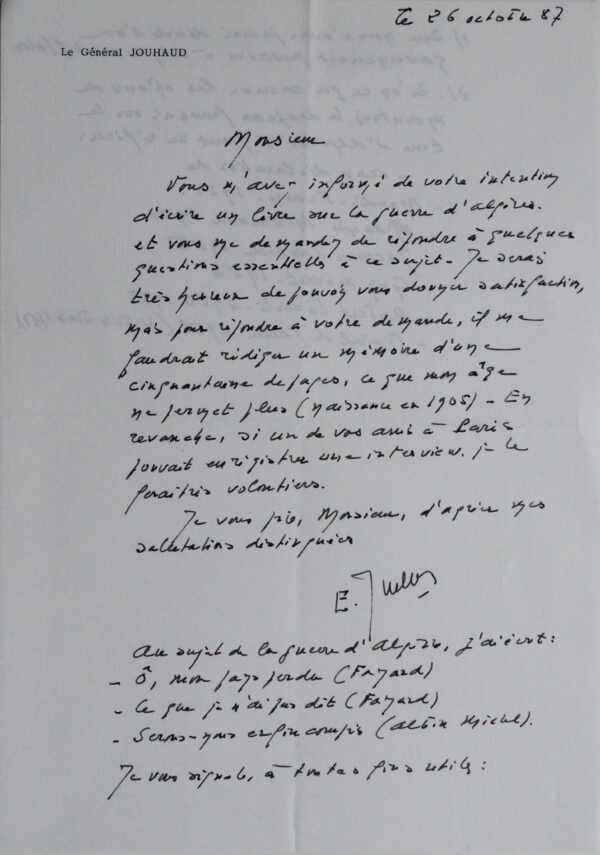 le 26 octobre 87
Le Général JOUHAUD
Monsieur
Vous m'avez informé de votre intention
d'écrire un livre sur la guerre d'Algérie.
et vous me demandez de répondre à quelques
questions essentielles à ce sujet - Je serais
très heureux de pouvoir vous donner satisfaction,
mais pour répondre à votre demande, il me
faudrait rédiger un mémoire d'une
cinquantaine de pages, ce que mon âge
ne permet plus (naissance en 1905) - En
revanche, si un de vos amis à Paris
pouvait enregistrer une interview. je le
ferai très volontiers.
Je vous prie, Monsieur, d'agréer mes
salutations distinguées
E. Jouhaud
Au sujet de la guerre d'Algérie, j'ai écrit :
- Ô, mon pays perdu (Fayard)
- Ce que je n'ai pas dit (Fayard)
- Serons-nous enfin compris (Albin Michel).
Je vous signale, à toutes fins utiles :